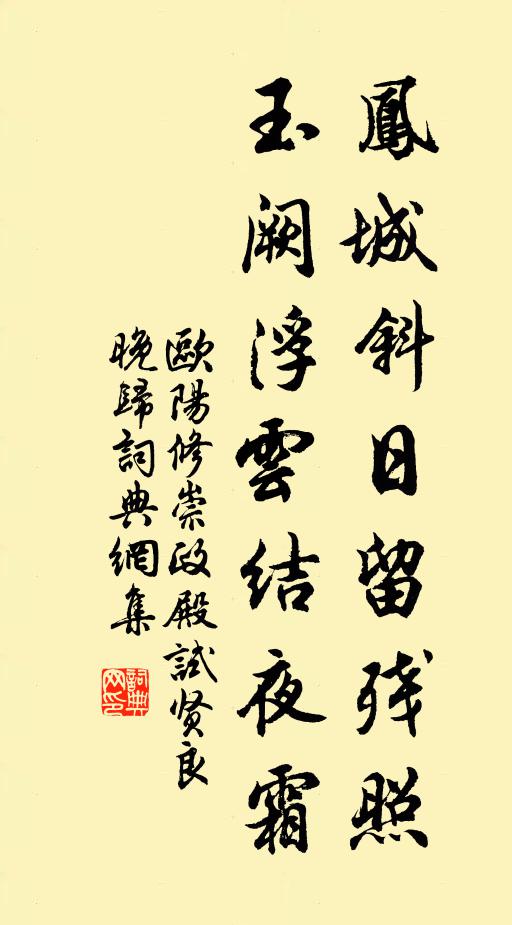 鳳城斜日留残照
玉阙浮雲结夜霜
歐陽修崇政殿試贤良
晚歸詞典網集
詞典网印